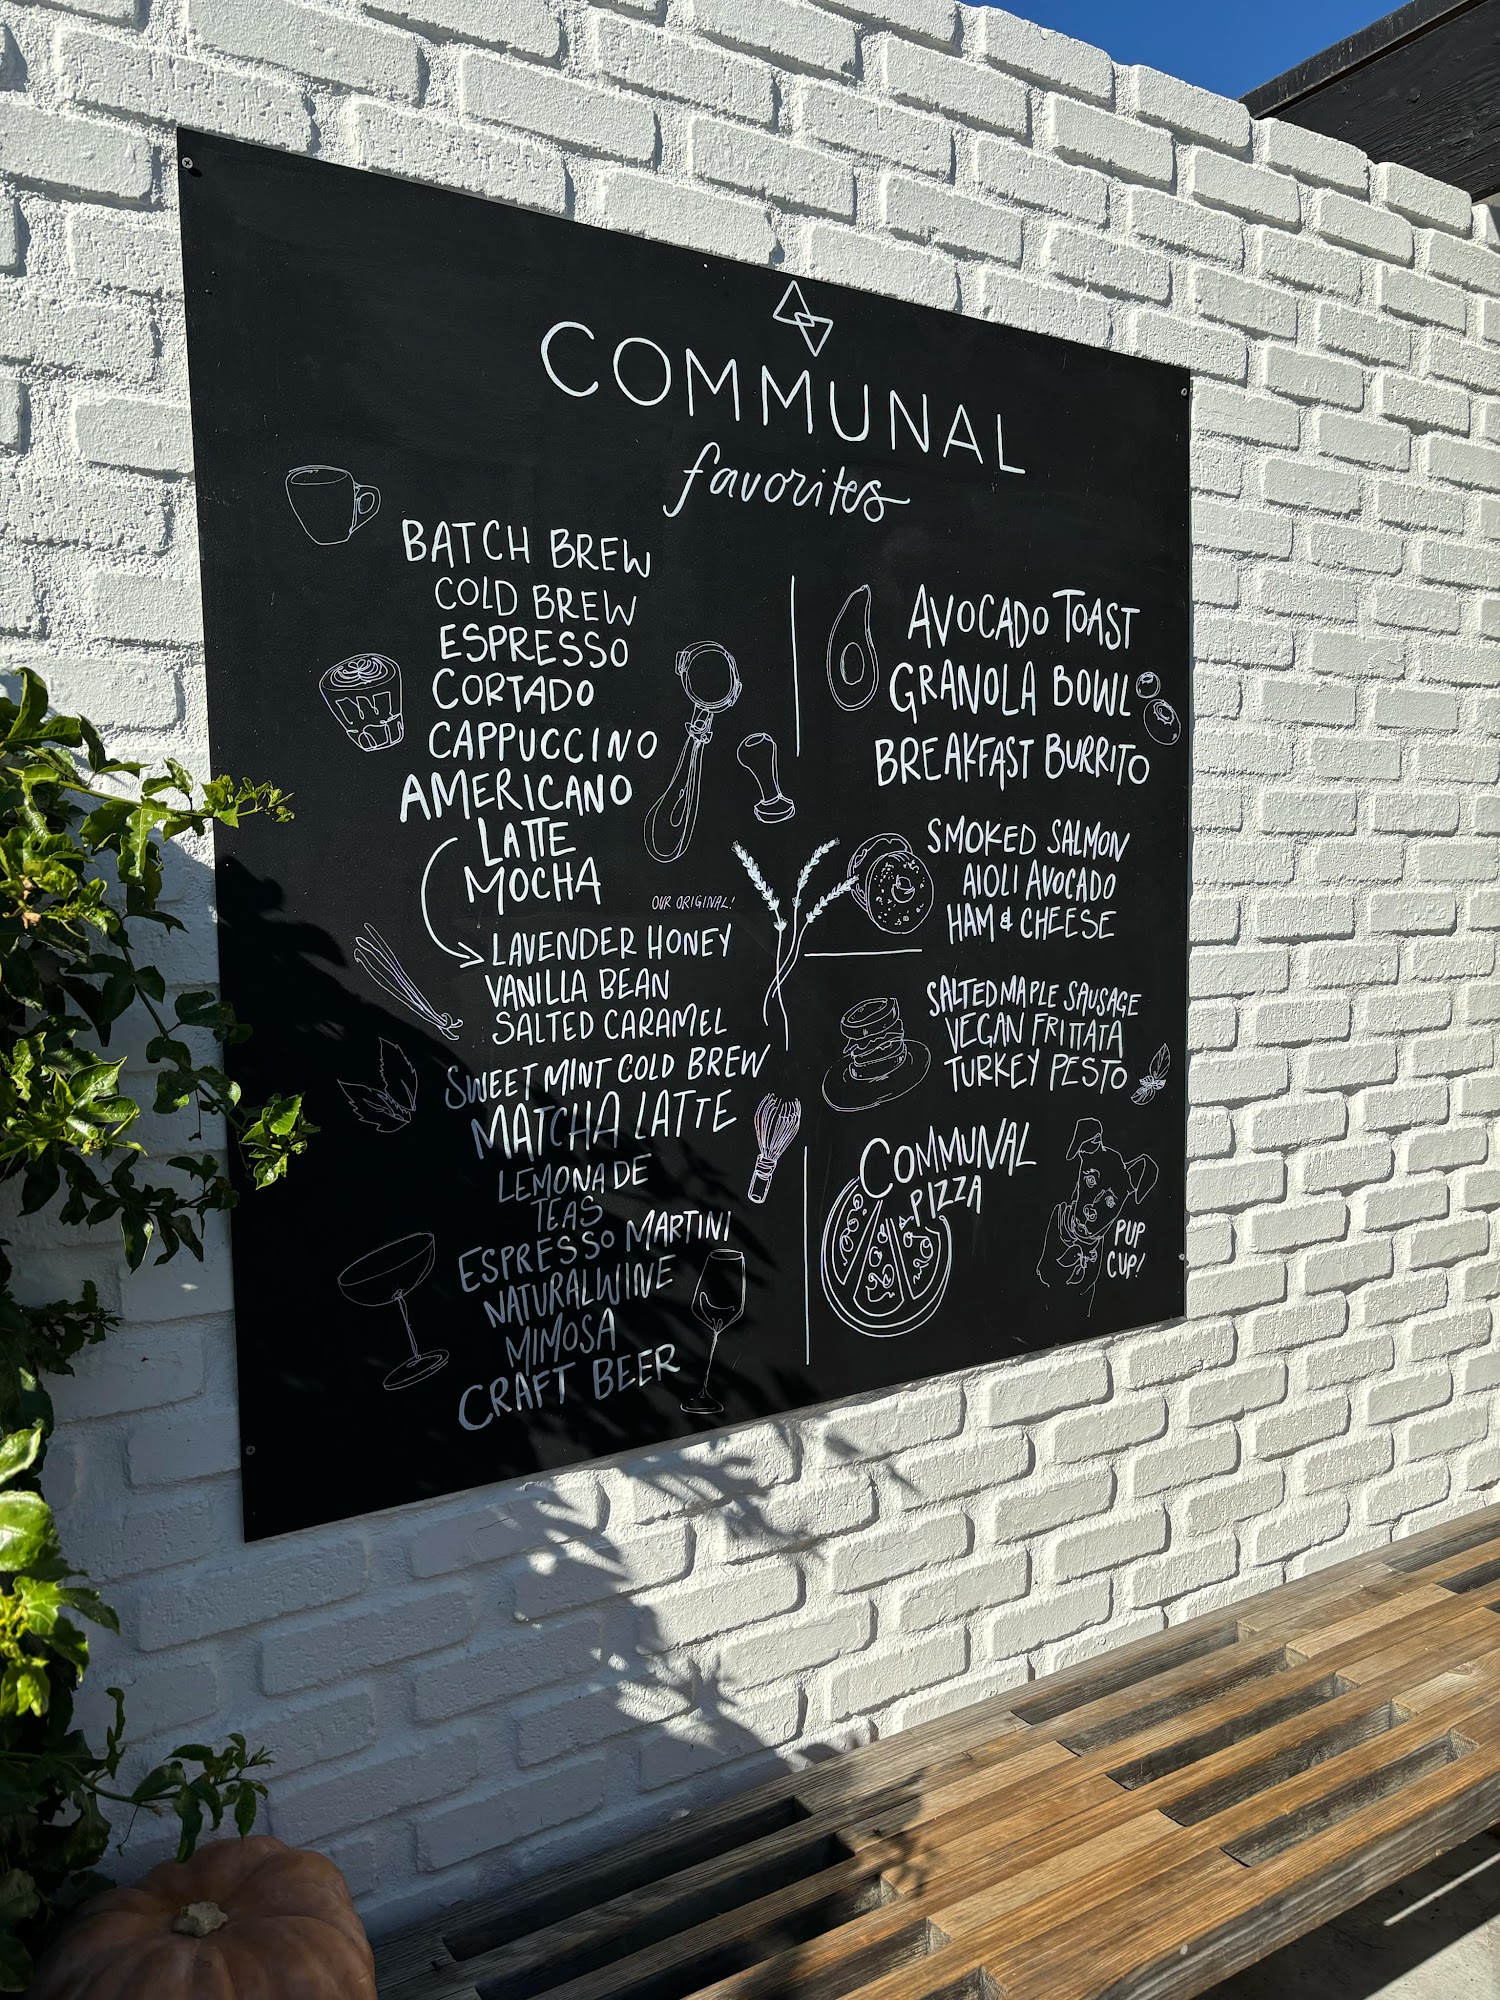 COMMUNAL
favorites
BATCH BREW
COLD BREW
ESPRESSO
CORTADO
CAPPUCCINO
AMERICANO
LATTE
MOCHA
OUR ORIGINAL!
LAVENDER HONEY
VANILLA BEAN
SALTED CARAMEL
SWEET MINT COLD BREW
MATCHA LATTE
LEMONADE
TEAS
ESPRESSO MARTINI
NATURAL WINE
MIMOSA
CRAFT BEER
AVOCADO TOAST
GRANOLA BOWL
BREAKFAST BURRITO
SMOKED SALMON
AIOLI AVOCADO
HAM & CHEESE
SALTED MAPLE SAUSAGE
VEGAN FRITTATA
TURKEY PESTO
COMMUNAL
PIZZA
PUP
CUP!